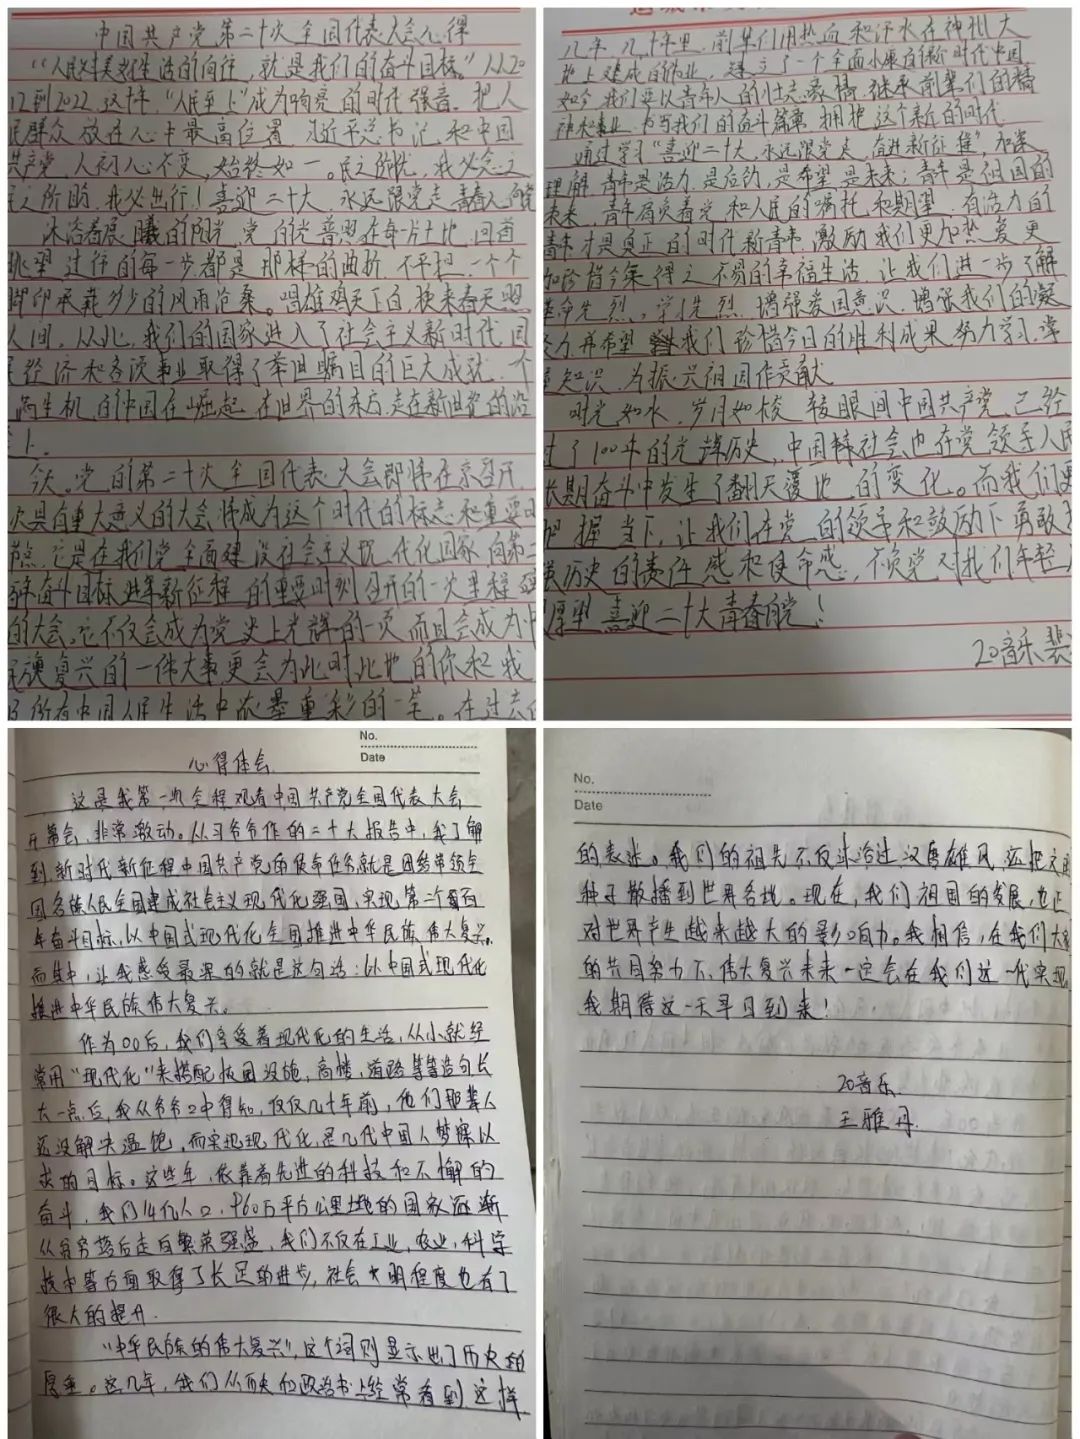 中国共产党第二十次全国代表大会心得
"人民对美好生活的向往，就是我们的奋斗目标。"从20
12到2022，这十年"人民至上"成为响亮的时代强音。把人
民群众放在心中最高位置，习近平总书记和中国
共产党人初心不变，始终如一。民之所忧，我必念之
民之所盼，我必出行！喜迎二十大，永远跟党走，青春
沐浴着晨曦的阳光，党的光普照在每一片土地，回首
眺望过往的每一步都是那样的曲折不平坦，一个个
脚印承载多少的风雨沧桑。唱雄鸡天下白，换来春天
人间，从此，我们的国家进入了社会主义新时代，国
民经济和各项事业取得了举世瞩目的巨大成就，一个
生机的中国在崛起，在世界的东方，走在新世纪的沿
上。
今天。党的第二十次全国代表大会即将在京召开，
次具有重大意义的大会将成为这个时代的标志和重要
节点，它是在我们党全面建设社会主义现代化国家，向第二
百年奋斗目标进军新征程的重要时刻召开的一次里程碑
的大会。它不仅会成为党史上光辉的一页而且会成为中
民族复兴的一件大事更会为此时此地的你和我
及所有中国人民生活中浓墨重彩的一笔。在过去
几年、几十年里，前辈们用热血和汗水在神州大
地上建成的伟业，建立了一个全面小康的新时代中国
如今我们要以青年人的壮志豪情，继承前辈们的精
神和事业，书写我们的奋斗篇章，拥抱这个新的时代
通过学习"喜迎二十大，永远跟党走，奋进新征程"，加深
理解，青年是活力，是后劲，是希望，是未来；青年是祖国的
未来，青年肩负着党和人民的嘱托和期望，有活力的
青年才是真正的时代新青年，激励我们更加热爱更
加珍惜今来得之不易的幸福生活，让我们进一步了解
革命先烈，学先烈，增强爱国意识，增强我们的凝
聚力，并希望我们珍惜今日的胜利成果，努力学习，掌
握知识，为振兴祖国作贡献
时光如水，岁月如梭，转眼间中国共产党已经
过了100年的光辉历史，中国特社会也在党领导人民
长期奋斗中发生了翻天覆地的变化。而我们更
把握当下，让我们在党的领导和鼓励下勇敢
历史的责任感和使命感，不负党对我们年轻人
厚望，喜迎二十大青春向党！
20音乐裴
No.
Date
心得体会
这是我第一次全程观看中国共产党全国代表大会
开幕会，非常激动。从习爷爷作的二十大报告中，我了解
到，新时代新征程中国共产党的使命任务就是团结带领全
国各族人民全国建成社会主义现代化强国，实现第二个百
年奋斗目标，以中国式现代化全面推进中华民族伟大复兴。
而其中，让我感受最深的就是这句话：以中国式现代化
推进中华民族伟大复兴。
作为00后，我们享受着现代化的生活，从小就经
常用"现代化"来搭配校园设施，高楼，道路等等造句，长
大一点后，我从爷爷口中得知，仅仅几十年前，他们那辈人
还没解决温饱，而实现现代化，是几代中国人梦寐以
求的目标。这些年，依靠着先进的科技和不懈的
奋斗，我们14亿人口，960万平方公里土地的国家逐渐
从贫穷落后走向繁荣强盛，我们不仅在工业，农业，科学
技术等方面取得了长足的进步，社会文明程度也有了
很大的提升.
"中华民族的伟大复兴"，这个词则显示出了历史的
厚重。这几年，我们从历史和政治书上经常看到这样
No.
Date
的表述。我们的祖先不仅缔造过汉唐雄风，还把文明
种子散播到世界各地。现在，我们祖国的发展，也正
对世界产生越来越大的影响力。我相信，在我们大家
的共同努力下，伟大复兴未来一定会在我们这一代实现
我期待这一天早日到来！
20音乐
王雅丹.